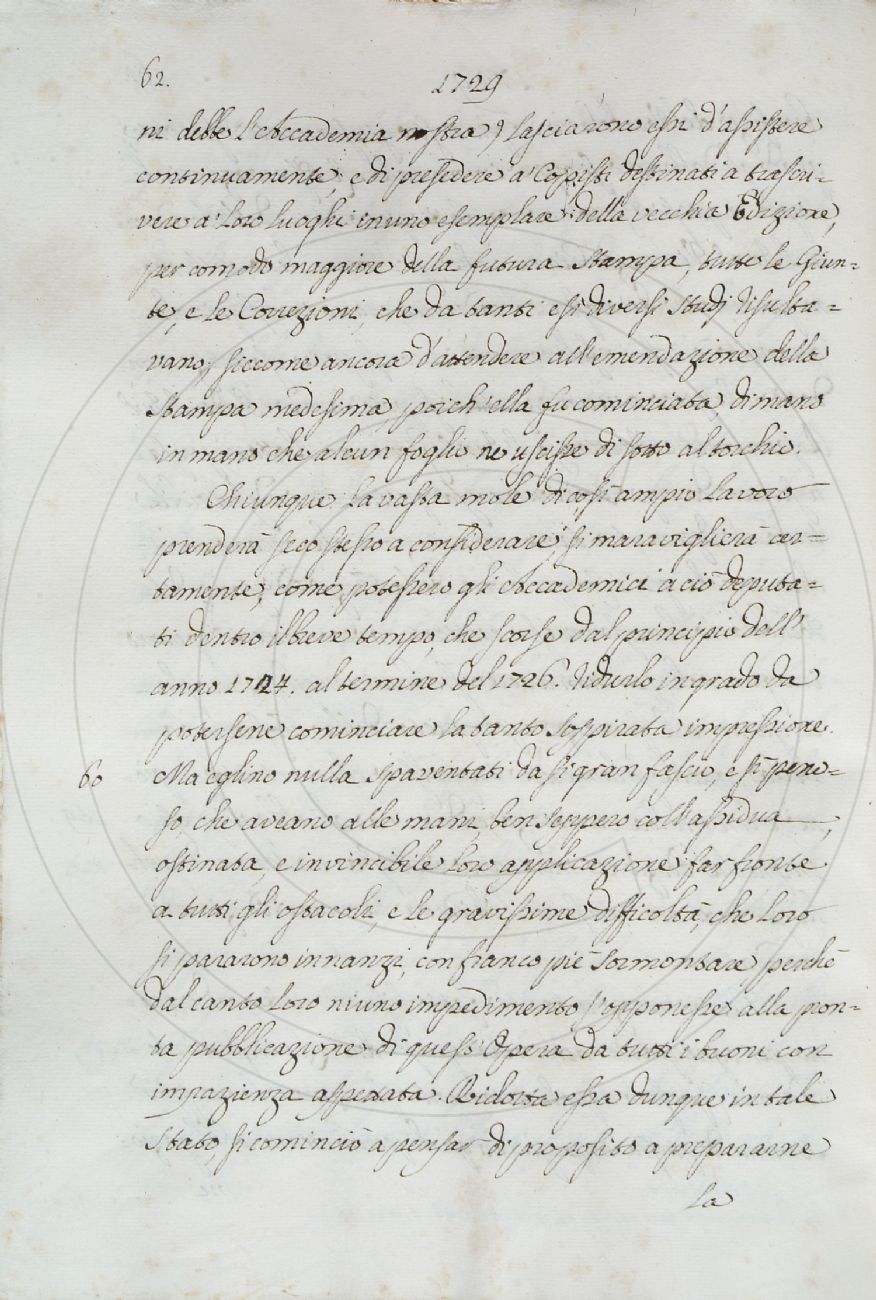 62.
1729
ni debbe l'Accademia nostra) lasciarono essi d'assistere
continuamente, e di presedere a' Copisti destinati a trascri=
vere a' loro luoghi in uno esemplare della vecchia Edizione,
per comodo maggiore della futura Stampa, tutte le Giun=
te, e le Correzioni, che da tanti e sì diversi Studj risulta=
vano, siccome ancora d'attendere all'emendazione della
Stampa medesima, poich'ella fu cominciata, di mano
in mano che alcun foglio ne uscisse di sotto al torchio.
Chiunque la vasta mole di così ampio lavoro
prenderà seco stesso a considerare, si maraviglierà cer=
tamente, come potessero gli Accademici a ciò deputa=
ti dentro il breve tempo, che scorse dal principio dell'
anno 1724. al termine del 1726. ridurlo in grado da
potersene cominciare la tanto sospirata impressione.
60
Ma eglino nulla spaventati da sì gran fascio, e sì peno=
so, che aveano alle mani, ben seppero coll'assidua,
ostinata, e invincibile loro applicazione far fronte
a tutti gli ostacoli, e le gravissime difficoltà, che loro
si pararono innanzi, con franco piè sormontare, perchè
dal canto loro niuno impedimento s'opponesse alla pron=
ta pubblicazione di quest'Opera da tutti i buoni con
impazienza aspettata. Ridotta essa dunque in tale
stato, si cominciò a pensar di proposito a prepararne
la